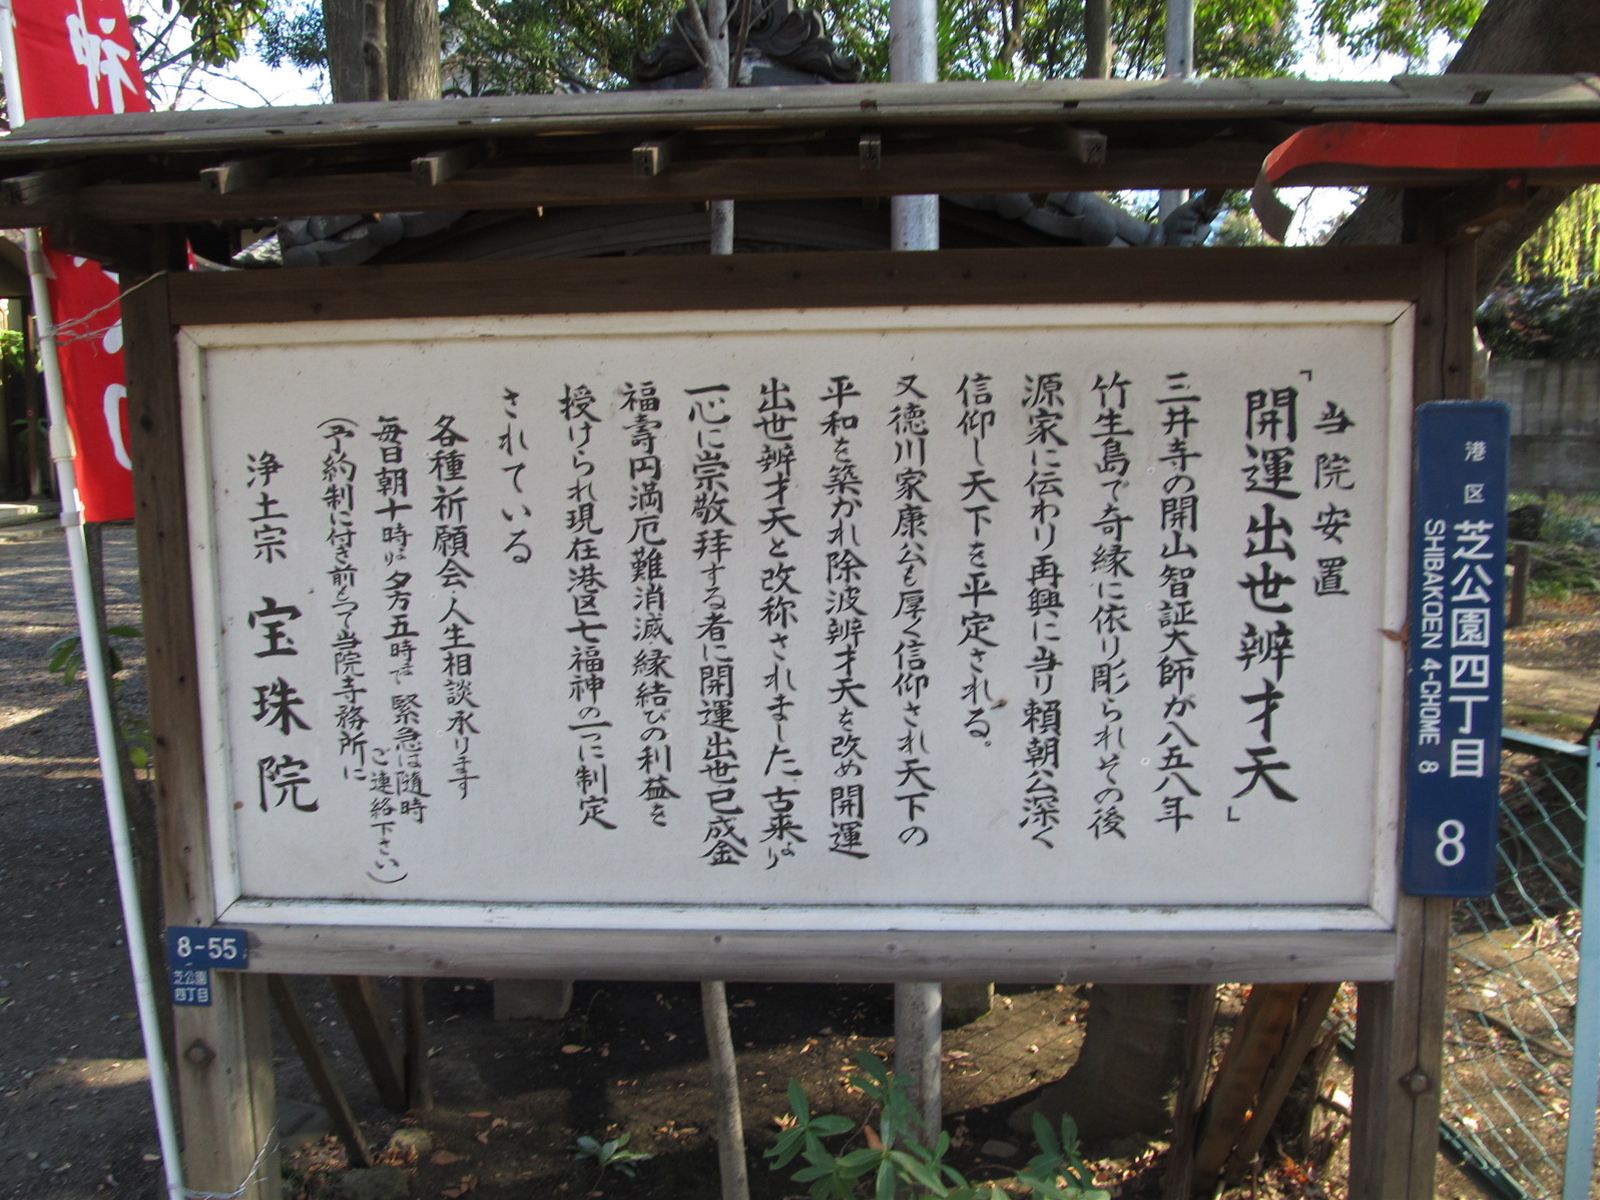 当院安置
「開運出世辨才天」
三井寺の開山智証大師が八五八年
竹生島で奇縁に依り彫られその後
源家に伝わり再興に当り頼朝公深く
信仰し天下を平定される。
又徳川家康公も厚く信仰され天下の
平和を築かれ除波辨才天を改め開運
出世辨才天と改称されました。古来より
一心に崇敬拝する者に開運出世・巳成金
福壽円満・厄難消滅・縁結びの利益を
授けられ現在港区七福神の一つに制定
されている
各種祈願会・人生相談承ります
毎日朝十時より夕方五時まで 緊急は随時
ご連絡下さい)
(予約制に付き前もって当院寺務所に
浄土宗 宝珠院
港区
芝公園四丁目
SHIBAKOEN 4-CHOME 8
8
8-55
芝公園
四丁目
神